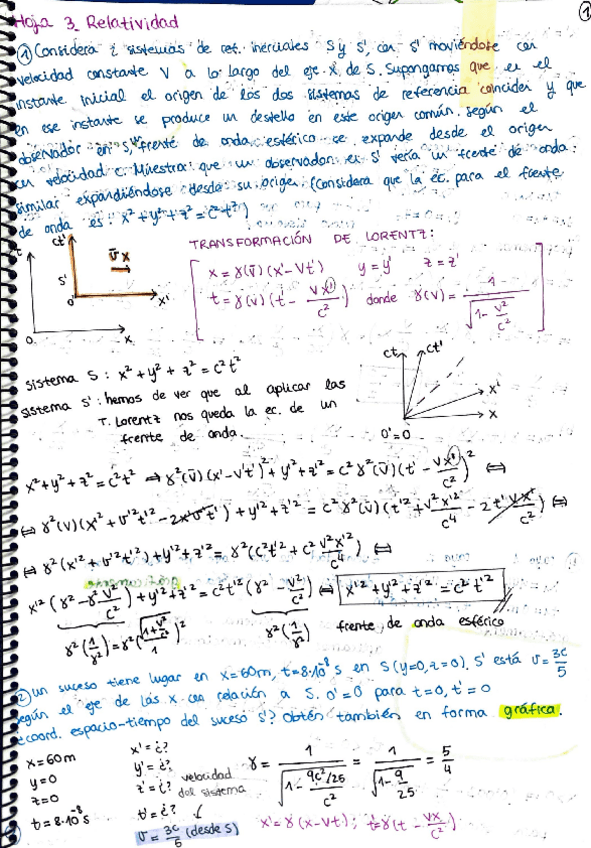 1
Hoja 3. Relatividad
① Considera 2 sistemas de ref. inerciales S y S', con S' moviéndose con
velocidad constante V a lo largo del eje X de S. Supongamos que en el
instante inicial el origen de los dos sistemas de referencia coinciden y que
en ese instante se produce un destello en este origen común. Según el
observador en S, frente de onda esférico se expande desde el origen
con velocidad c. Muestra que un observador en S' vería un frente de onda
similar expandiéndose desde su origen. (Considera que la ec. para el frente
de onda es: x² + y² + z² = c²t²)
ct'
S'
v̄x
0'
x'
0
x
TRANSFORMACIÓN DE LORENTZ:
x = γ(v̄) (x' - Vt') y = y' z = z'
t = γ(v̄) (t' - Vx'/c²) donde γ(v) = 1/√(1 - v²/c²)
Sistema S: x² + y² + z² = c²t²
Sistema S': hemos de ver que al aplicar las
T. Lorentz nos queda la ec. de un
frente de onda.
ct
ct'
x'
x
0'=0
x² + y² + z² = c²t² ⇒ γ²(v̄) (x' - v't')² + y'² + z'² = c² γ²(v̄) (t' - vx'/c²)² ⇔
⇔ γ²(v) (x'² + v'²t'² - 2x'v't') + y'² + z'² = c² γ²(v̄) (t'² + v²x'²/c⁴ - 2t'vx'/c²) ⇔
⇔ γ²(x'² + v'²t'²) + y'² + z'² = γ²(c²t'² + c² v²x'²/c⁴) ⇔
x'² (γ² - γ² v²/c²) + y'² + z'² = c²t'² (γ² - v²/c²) ⇔ x'² + y'² + z'² = c²t'²
γ²(1/γ²) = γ²(√(1+v²/c²)/1)² γ²(1/γ²) frente de onda esférico
② Un suceso tiene lugar en x=60m, t=8·10⁻⁸ s en S (y=0, z=0). S' está v = 3c/5
según el eje de las x con relación a S. 0'=0 para t=0, t'=0
coord. espacio-tiempo del suceso S'? Obtén también en forma gráfica.
x = 60m
y = 0
z = 0
t = 8·10⁻⁸ s
x' = ¿?
y' = ¿?
z' = ¿?
t' = ¿?
velocidad
del sistema
v = 3c/5 (desde S)
γ = 1/√(1 - (9c²/25)/c²) = 1/√(1 - 9/25) = 5/4
x' = γ(x - vt); t' = γ(t - vx/c²)